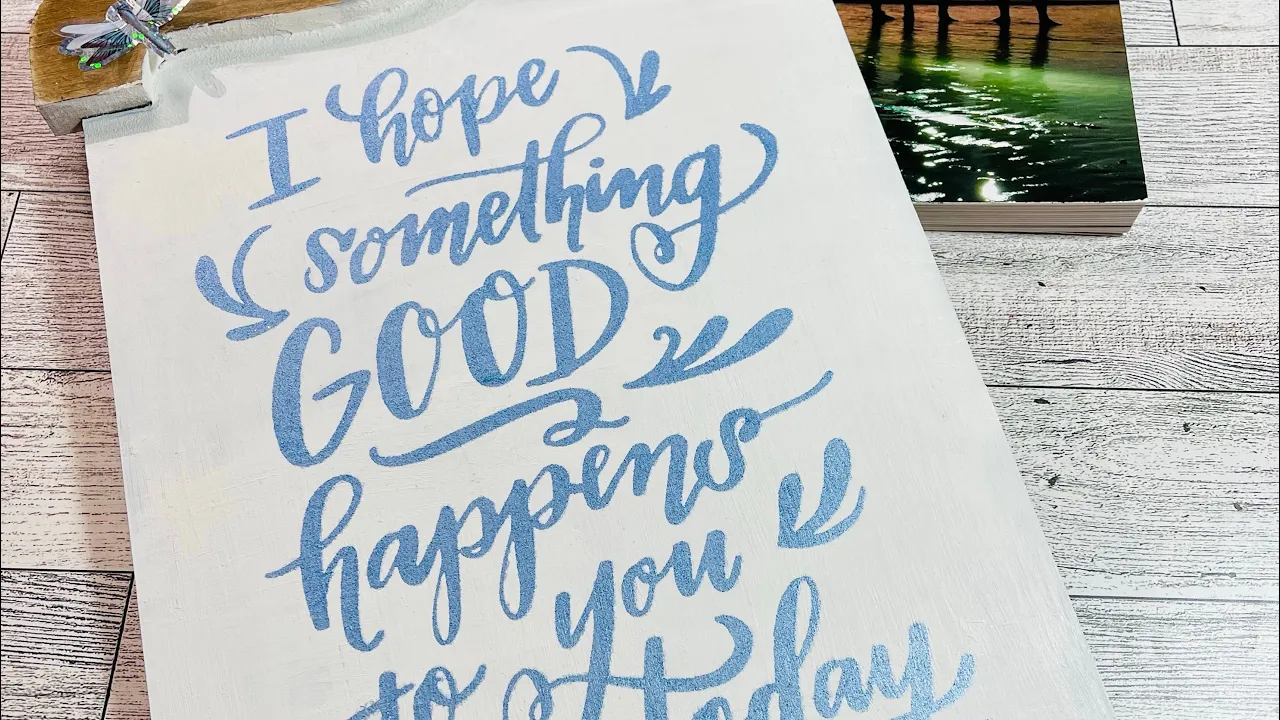 I hope
something
GOOD
happens
to you
today